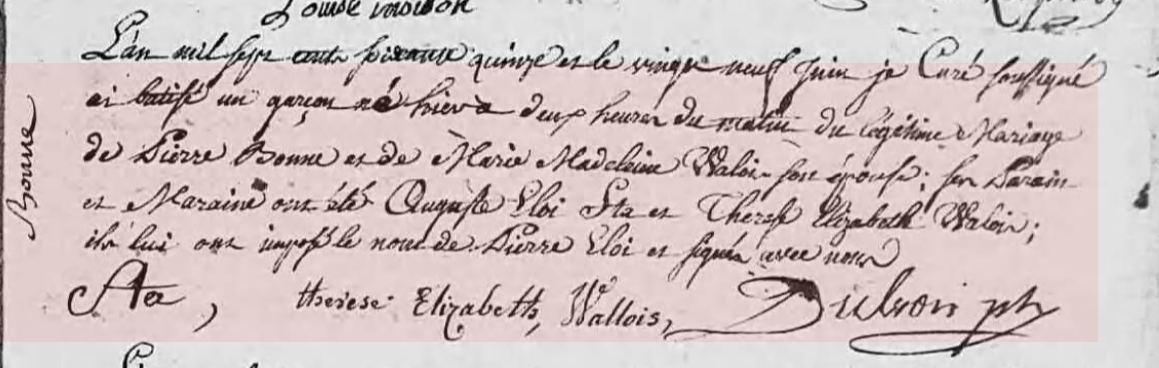 L'an mil sept cent soixante quinze et le vingt neuf juin je Curé soussigné
Bonne
ai batisé un garçon né hier à deux heures du matin du légitime Mariage
de Pierre Bonne et de Marie Madeleine Waloi son épouse; ses Parain
et Maraine ont été Auguste Eloi Sta et Therese Elizabeth Walois;
ils lui ont imposé le nom de Pierre Eloi et signés avec nous
Sta, therese Elizabeth, Wallois,